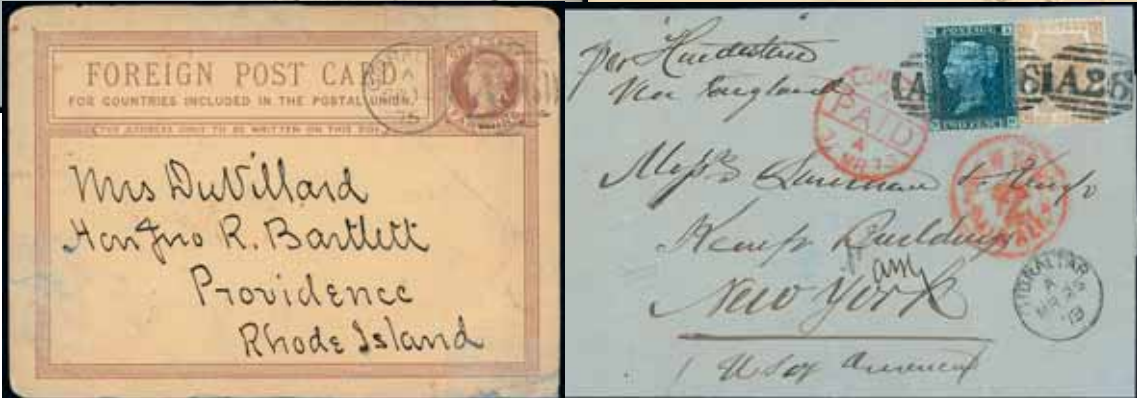 FOREIGN POST CARD
FOR COUNTRIES INCLUDED IN THE POSTAL UNION.
(THE ADDRESS ONLY TO BE WRITTEN ON THIS SIDE)
A
75
Mrs DuVillard
Hon Jno R. Bartlett
Providence
Rhode Island
per Hindustan
Via England
POSTAGE
TWO PENCE
A26
A26
PAID
4
MR
Messrs
Kemp Buildings
am
New York
GIBRALTAR
A
MR 25
79
U S of America